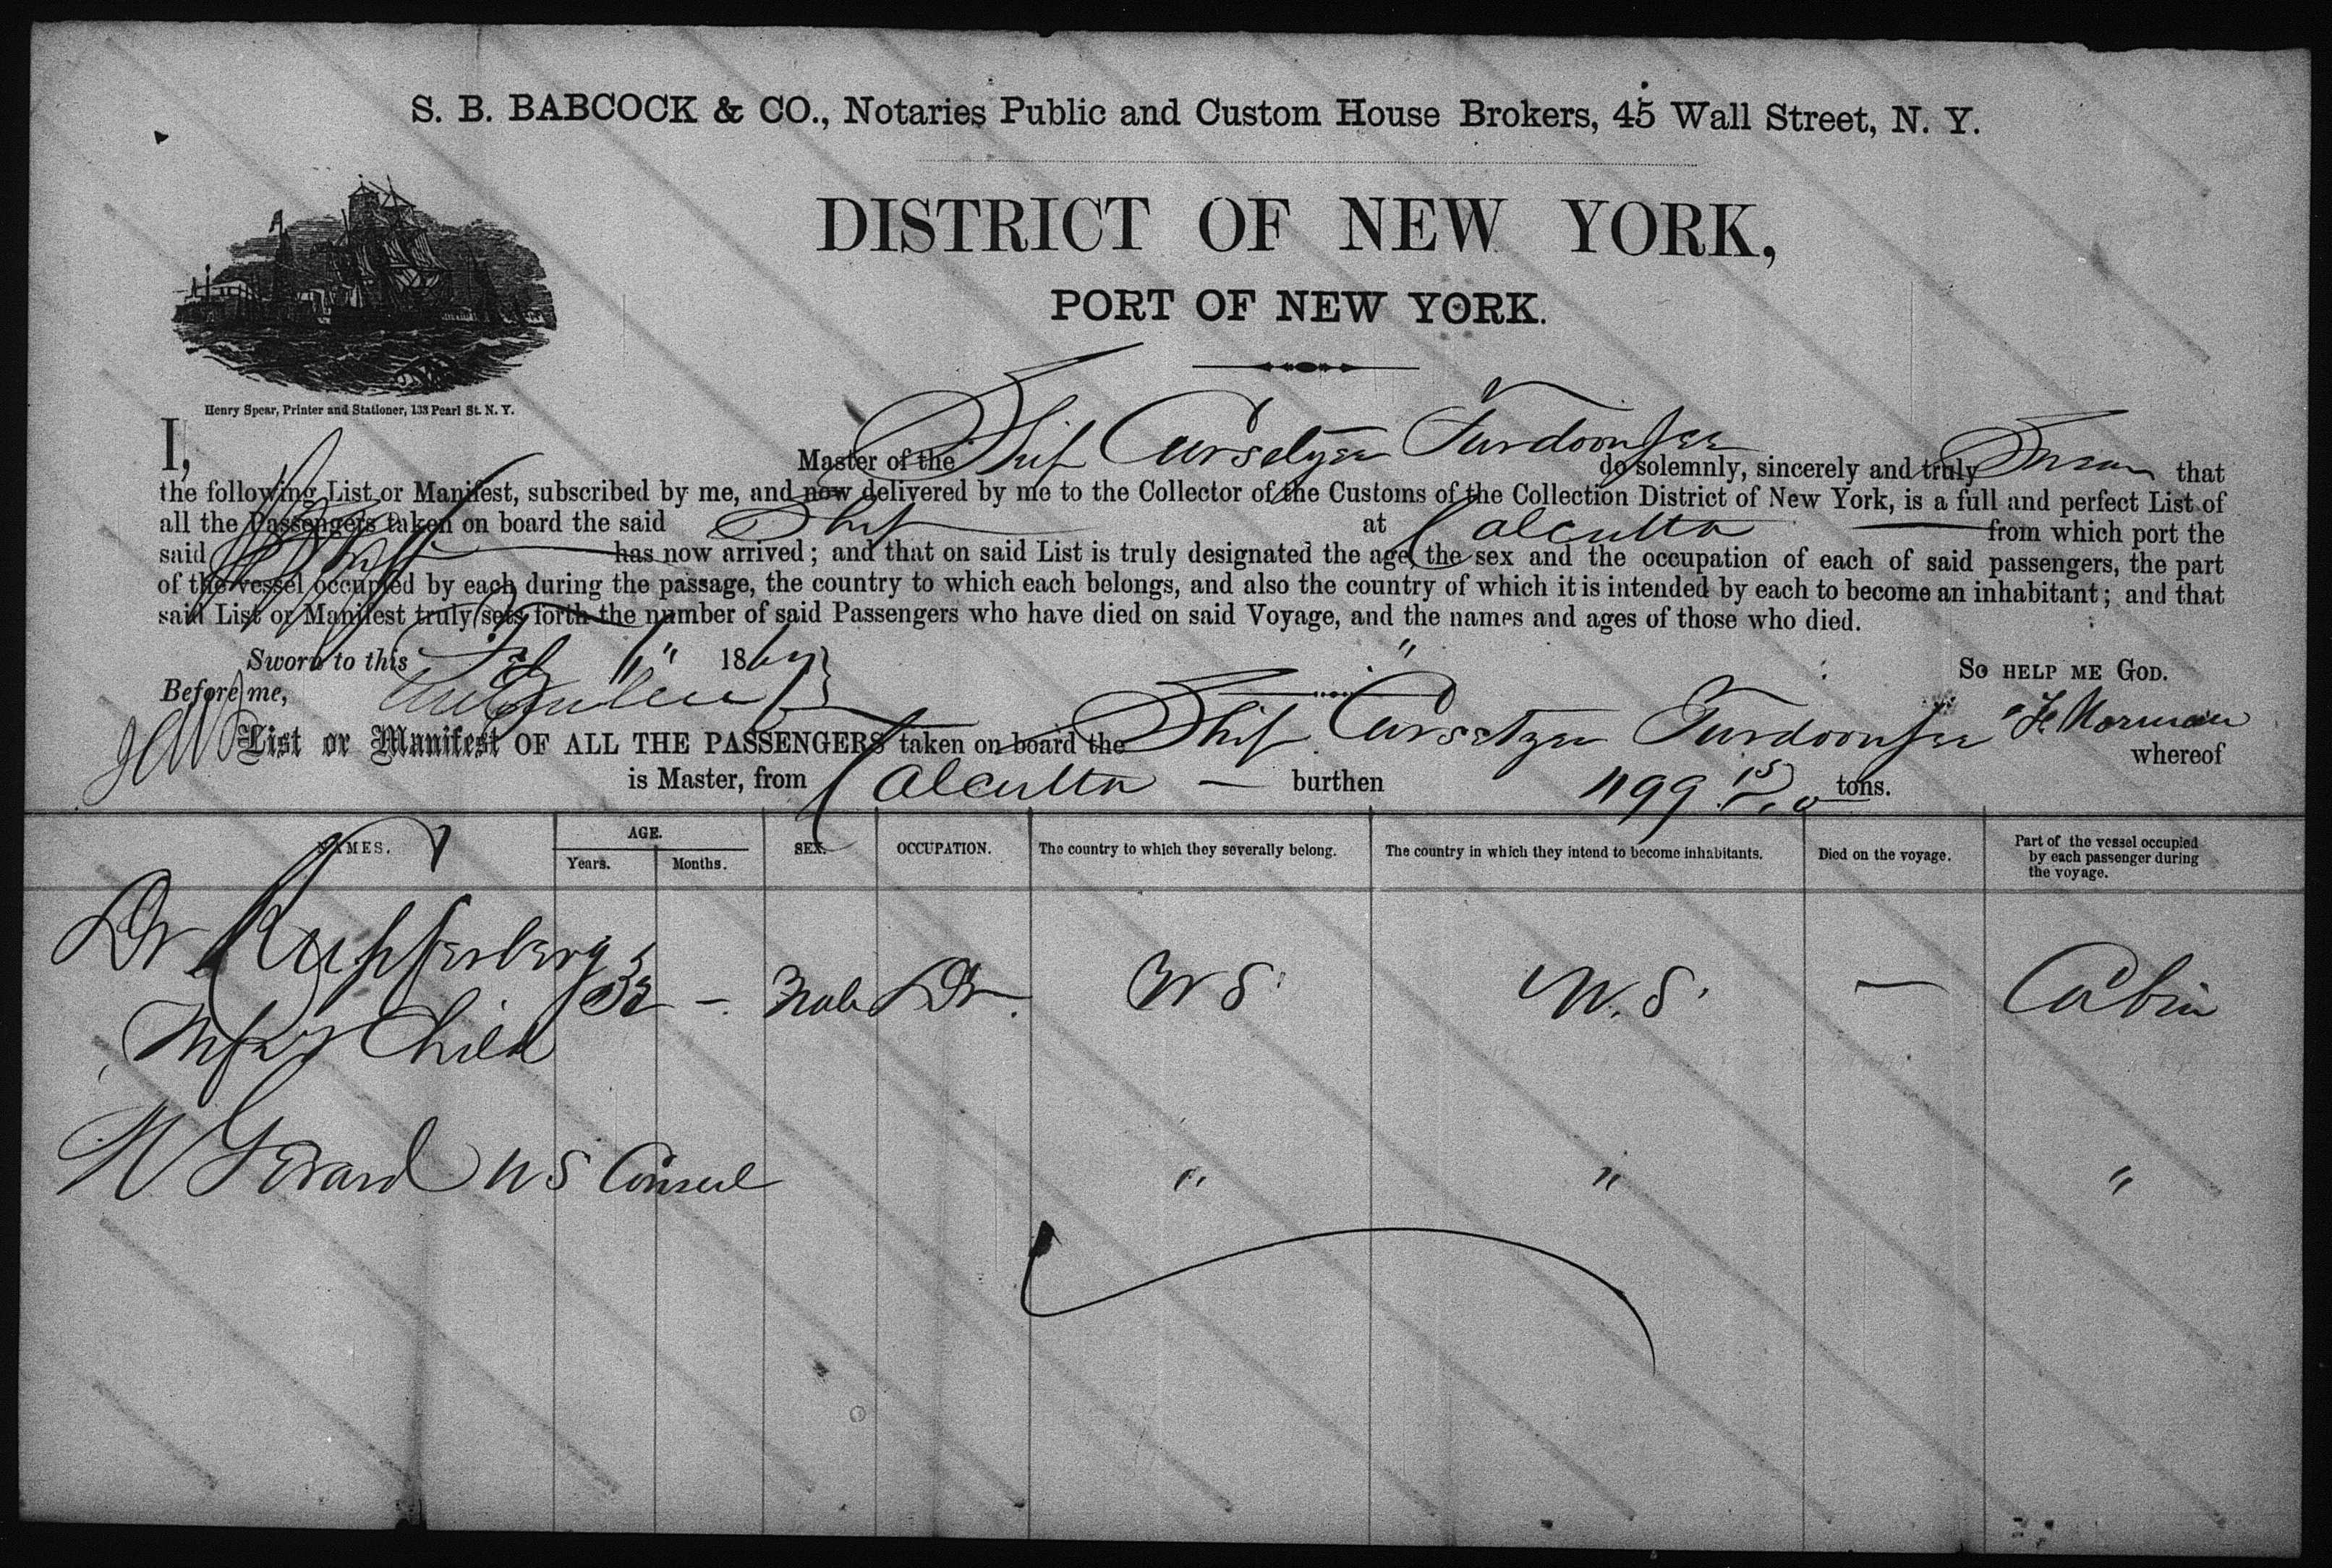 S. B. BABCOCK & CO., Notaries Public and Custom House Brokers, 45 Wall Street, N. Y.
DISTRICT OF NEW YORK,
PORT OF NEW YORK.
Henry Spear, Printer and Stationer, 133 Pearl St. N. Y.
I, Master of the Ship Cursetjee Furdoonjee do solemnly, sincerely and truly Swear that
the following List or Manifest, subscribed by me, and now delivered by me to the Collector of the Customs of the Collection District of New York, is a full and perfect List of
all the Passengers taken on board the said Ship at Calcutta from which port the
said Ship has now arrived; and that on said List is truly designated the age, the sex and the occupation of each of said passengers, the part
of the vessel occupied by each during the passage, the country to which each belongs, and also the country of which it is intended by each to become an inhabitant; and that
said List or Manifest truly sets forth the number of said Passengers who have died on said Voyage, and the names and ages of those who died.
Sworn to this Feb " 186 " So HELP ME GOD.
Before me,
List or Manifest OF ALL THE PASSENGERS taken on board the Ship Cursetzee Furdoonjee Norman whereof
is Master, from Calcutta — burthen 1199 tons.
NAMES. AGE. Years. Months. SEX. OCCUPATION. The country to which they severally belong. The country in which they intend to become inhabitants. Died on the voyage. Part of the vessel occupied by each passenger during the voyage.
Dr Kupferberg 32 — Male Dr. U S U. S. — Cabin
Child
Gerard U S Consul " " "